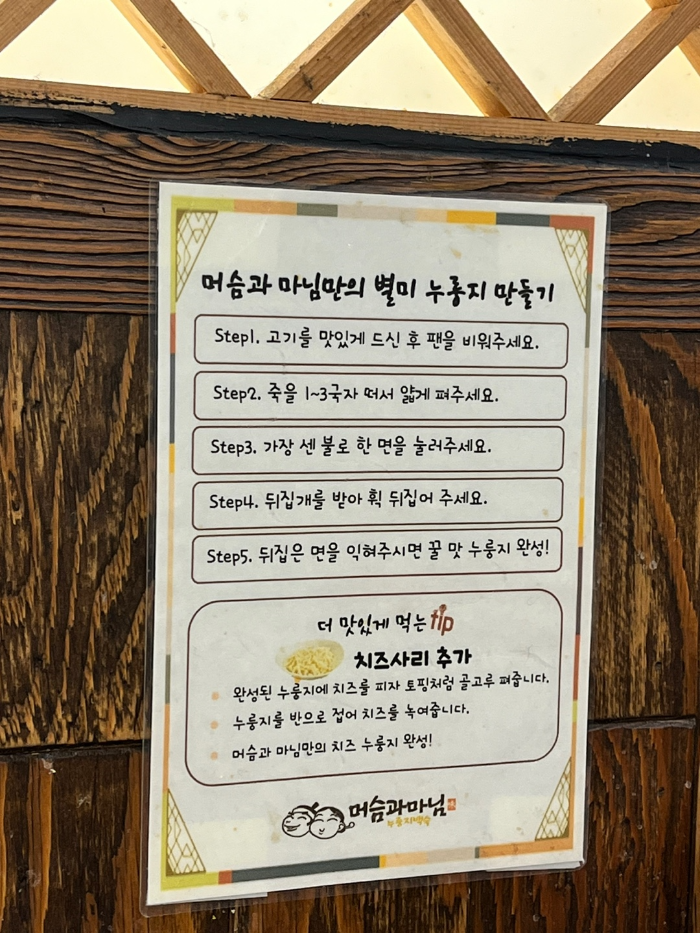 머슴과 마님만의 별미 누룽지 만들기
Step1. 고기를 맛있게 드신 후 팬을 비워주세요.
Step2. 죽을 1~3국자 떠서 얇게 펴주세요.
Step3. 가장 센 불로 한 면을 눌러주세요.
Step4. 뒤집개를 받아 휙 뒤집어 주세요.
Step5. 뒤집은 면을 익혀주시면 꿀 맛 누룽지 완성!
더 맛있게 먹는 tip
치즈사리 추가
완성된 누룽지에 치즈를 피자 토핑처럼 골고루 펴줍니다.
누룽지를 반으로 접어 치즈를 녹여줍니다.
머슴과 마님만의 치즈 누룽지 완성!
머슴과마님
누룽지백숙